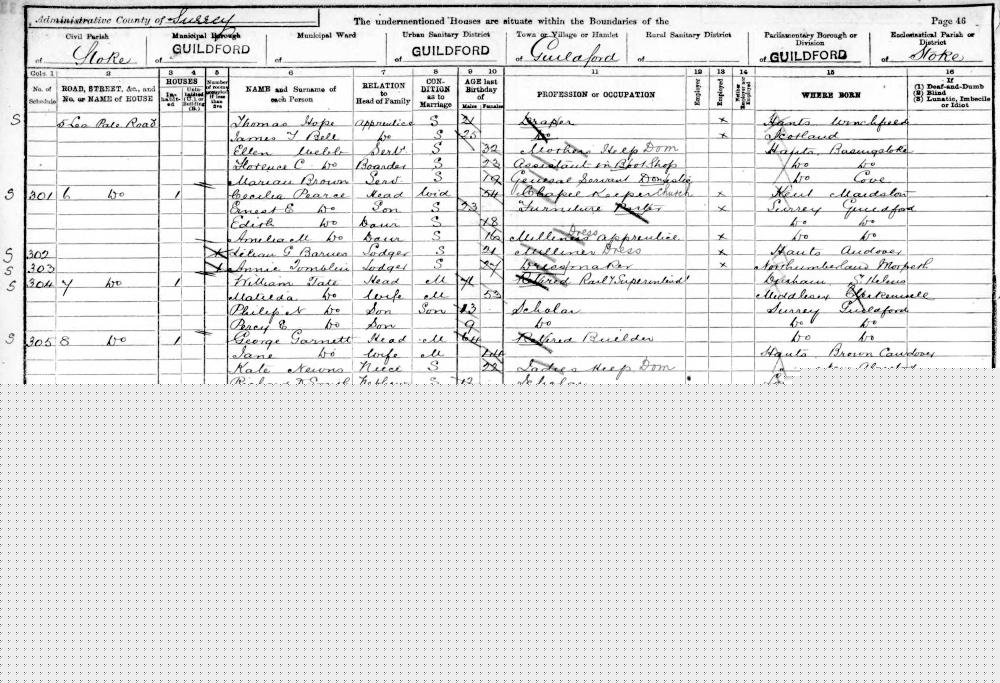 Administrative County of Surrey The undermentioned Houses are situate within the Boundaries of the Page 46
Civil Parish Municipal Borough Municipal Ward Urban Sanitary District Town or Village or Hamlet Rural Sanitary District Parliamentary Borough or Division Ecclesiastical Parish or District
of Stoke of GUILDFORD of of GUILDFORD of Guildford of of GUILDFORD of Stoke
Cols. 1 2 3 4 5 6 7 8 9 10 11 12 13 14 15 16
No. of Schedule ROAD, STREET, &c., and No. or NAME of HOUSE HOUSES Inhabited NAME and Surname of each Person RELATION to Head of Family CONDITION as to Marriage AGE last Birthday of Males Females PROFESSION or OCCUPATION Employer Employed WHERE BORN If (1) Deaf-and-Dumb (2) Blind (3) Lunatic, Imbecile or Idiot
S 5 Lea Pale Road Thomas Hope Apprentice S 21 Draper x Hants Winchfield
James T Bell Do S 25 Do x Scotland
Ellen Webb Servt S 32 Mothers Help Dom Hants Basingstoke
Florence C Do Boarder S 23 Assistant in Boot Shop Do Do
Marian Brown Serv S 19 General Servant Domestic Do Cove
S 301 6 Do 1 Cecilia Pearce Head Wid 54 Chapel Keeper Kent Maidston
Ernest E Do Son S 23 Furniture x Surrey Guildford
Edith Do Daur S 18 Do Do
Amelia M Do Daur S 16 Milliners Dress apprentice x Do Do
S 302 x Lilian G Barnes Lodger S 21 Milliner Dress x Hants Andover
S 303 x Annie Tomblin Lodger S 27 Dressmaker x Northumberland Morpeth
S 304 7 Do 1 William Tate Head M 71 Retired Raily Superintend St Helens
Matilda Do Wife M 53 Middlesex Clerkenwell
Philip N Do Son Son 13 Scholar Surrey Guildford
Percy E Do Son 9 Do Do Do
S 305 8 Do 1 George Garnett Head M 64 Retired Builder Do Do
Jane Do Wife M Hants Brown Candover
Kate Newns Niece S 22 Ladies Help Dom